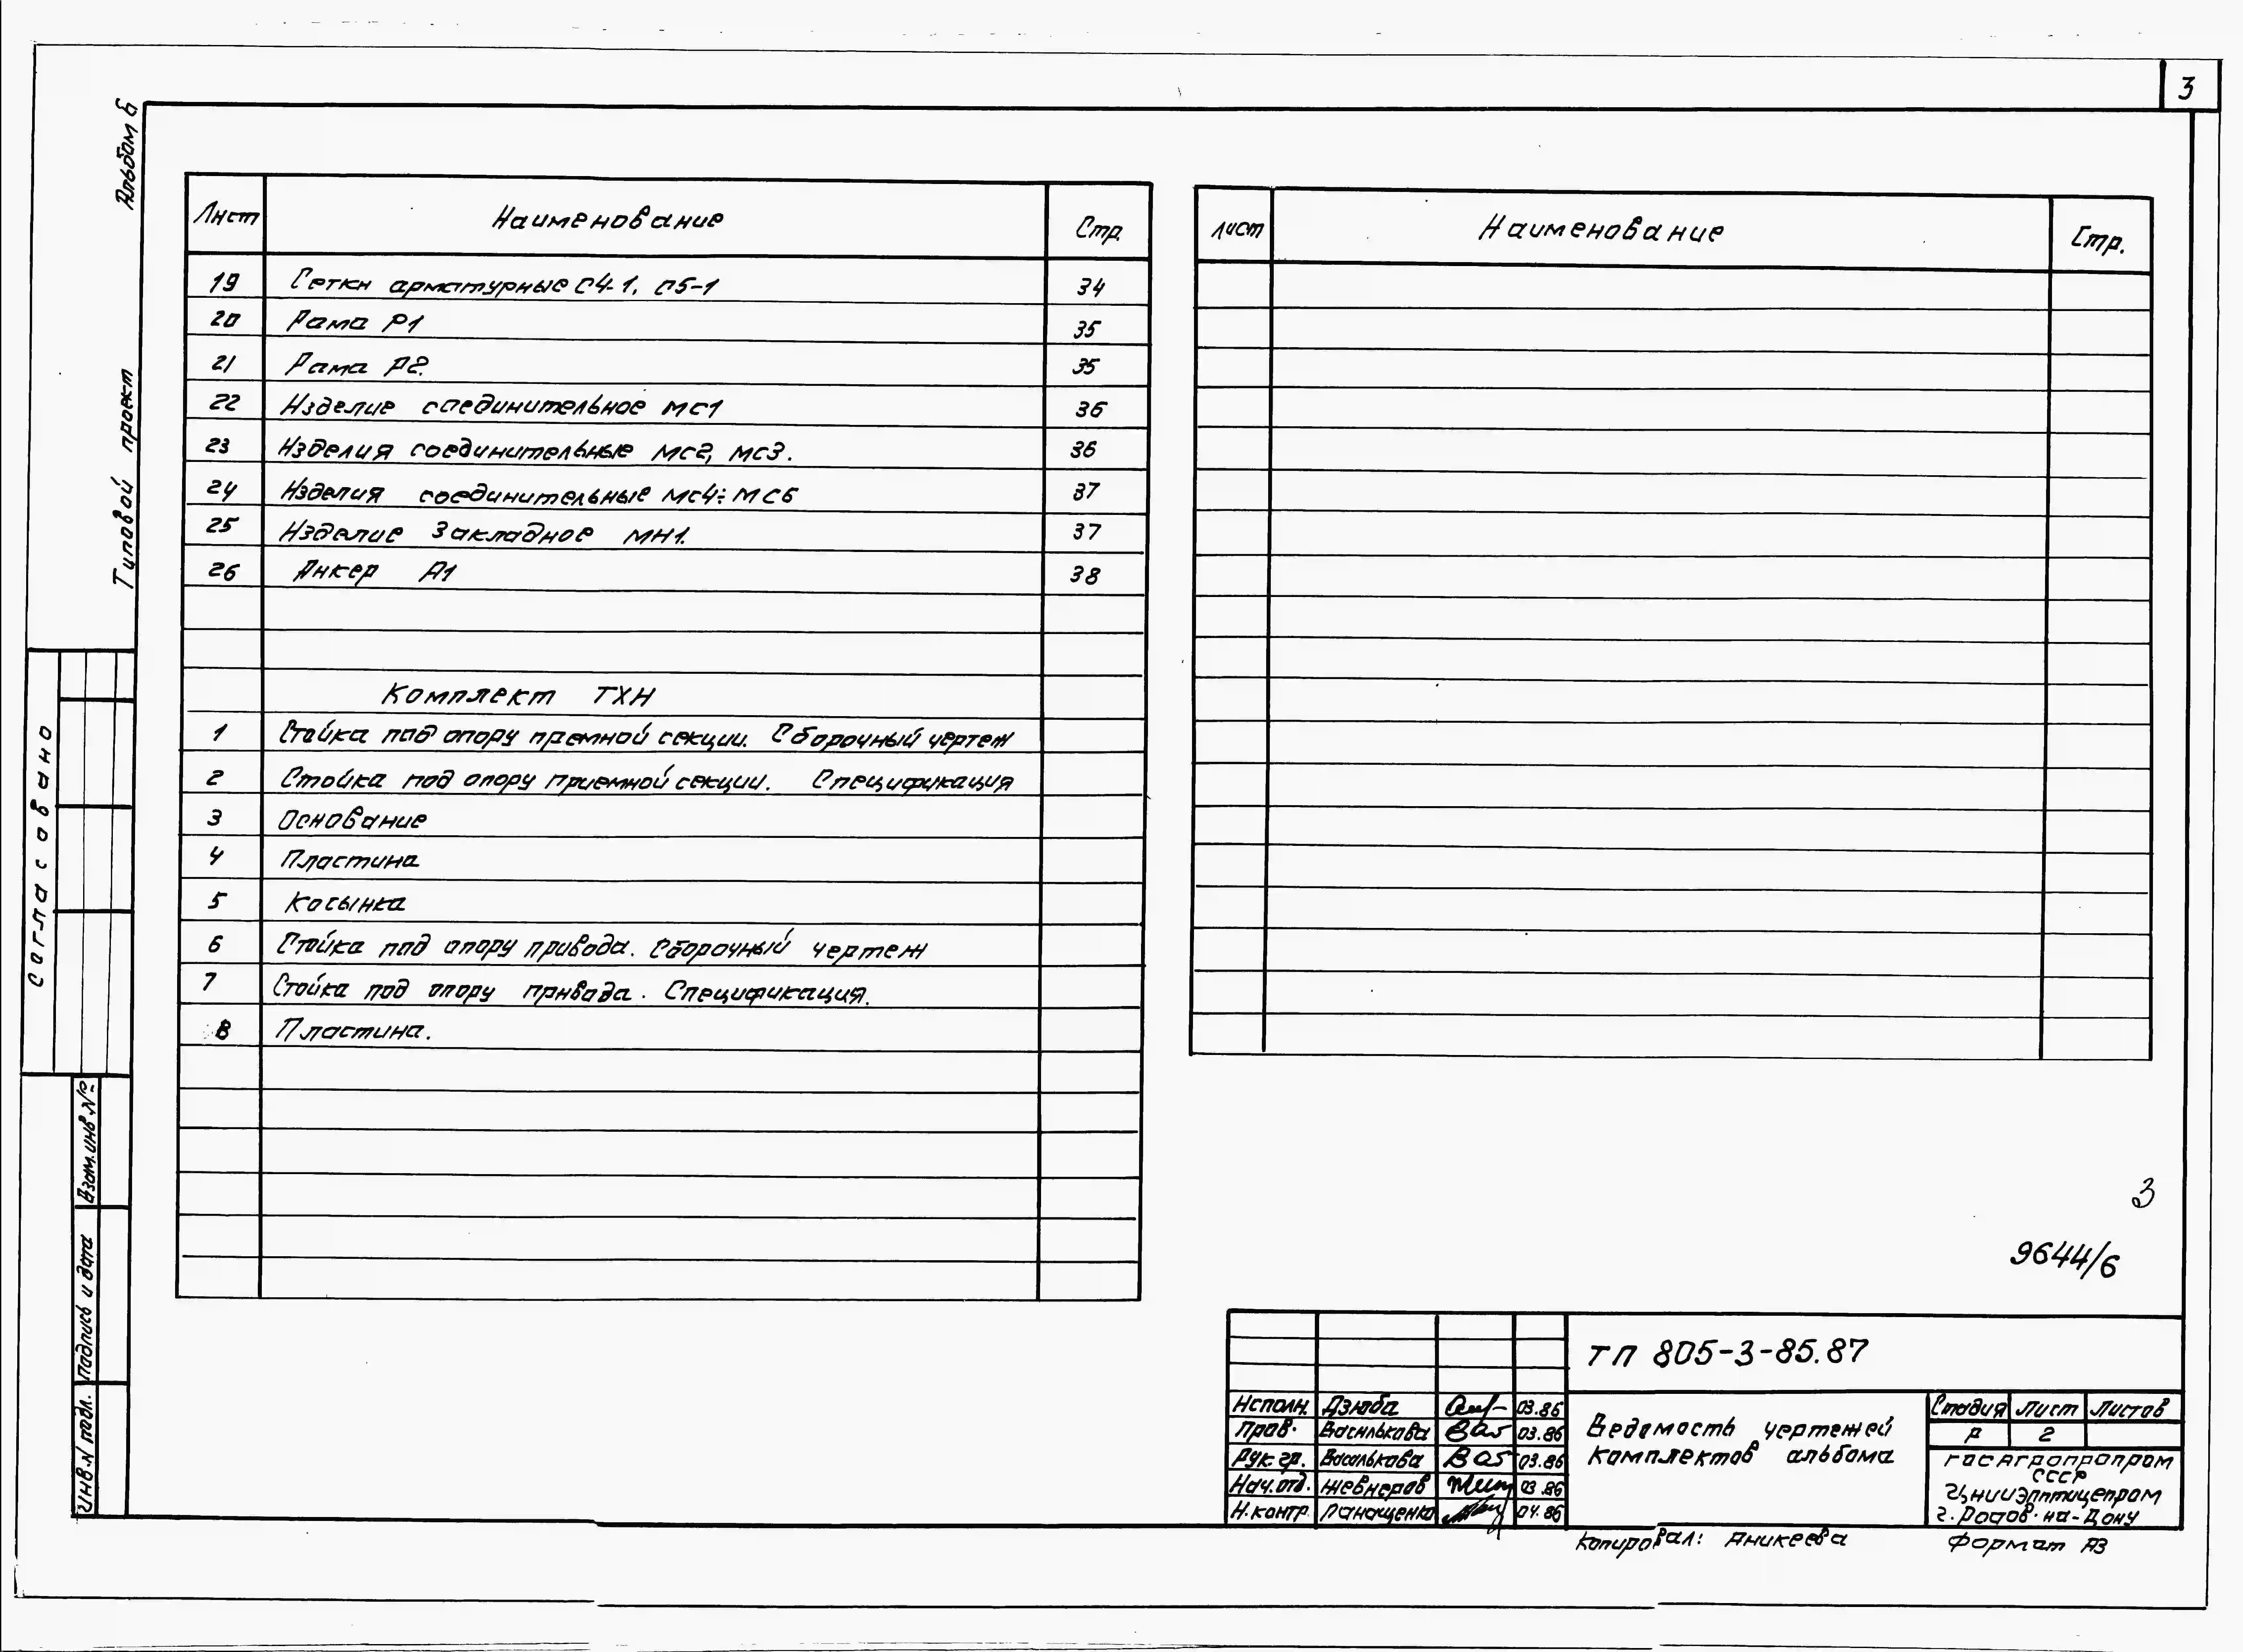 3
Альбом 6
Типовой проект
Лист Наименование Стр.
19 Сетки арматурные С4-1, С5-1 34
20 Рама Р1 35
21 Рама Р2. 35
22 Изделие соединительное МС1 36
23 Изделия соединительные МС2, МС3. 36
24 Изделия соединительные МС4÷МС6 37
25 Изделие закладное МН1. 37
26 Анкер А1 38
Комплект ТХН
1 Стойка под опору премной секции. Сборочный чертеж
2 Стойка под опору приемной секции. Спецификация
3 Основание
4 Пластина
5 Косынка
6 Стойка под опору привода. Сборочный чертеж
7 Стойка под опору привода. Спецификация.
8 Пластина.
Лист Наименование Стр.
Согласовано
Взам.инв.№
Подпись и дата
Инв.№ подл.
3
9644/6
ТП 805-3-85.87
Исполн. Дзюба 03.86
Пров. Василькова 03.86
Рук.гр. Василькова 03.86
Нач.отд. Жевнеров 03.86
Н.контр. Панащенко 04.86
Ведомость чертежей
комплектов альбома
Стадия Лист Листов
Р 2
Госагропропром
СССР
г. на-Дону
Копировал: Аникеева
Формат А3